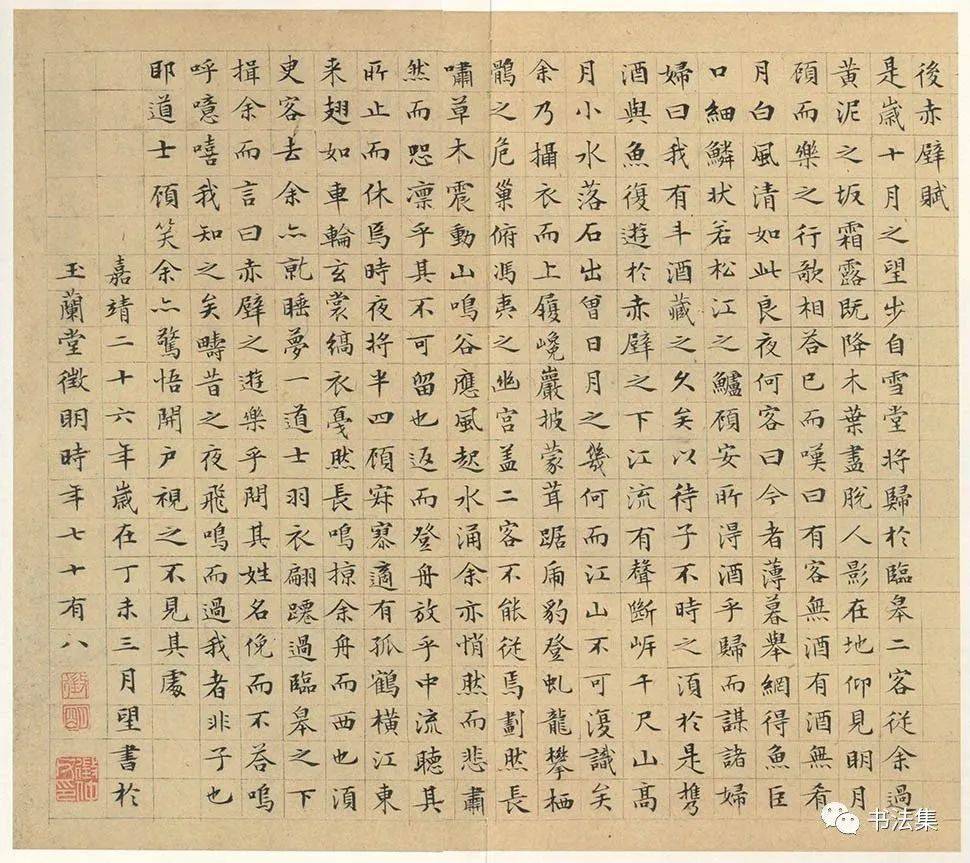 後赤壁賦
是歲十月之望步自雪堂将歸於臨皋二客従余過
黄泥之坂霜露既降木葉盡脫人影在地仰見明月
顧而樂之行歌相答已而嘆曰有客無酒有酒無肴
月白風清如此良夜何客曰今者薄暮舉網得魚巨
口細鱗状若松江之鱸顧安所得酒乎歸而謀諸婦
婦曰我有斗酒藏之久矣以待子不時之湏於是携
酒與魚復遊於赤壁之下江流有聲斷岸千尺山髙
月小水落石出曾日月之幾何而江山不可復識矣
余乃攝衣而上履巉巖披蒙茸踞虎豹登虬龍攀栖
鶻之危巢俯馮夷之幽宮盖二客不能従焉劃然長
嘯草木震動山鳴谷應風起水涌余亦悄然而悲肅
然而恐凛乎其不可留也返而登舟放乎中流聴其
所止而休焉時夜将半四顧寂寥適有孤鶴橫江東
来翅如車輪玄裳縞衣戛然長鳴掠余舟而西也湏
臾客去余亦就睡夢一道士羽衣翩躚過臨皋之下
揖余而言曰赤壁之遊樂乎問其姓名俛而不答嗚
呼噫嘻我知之矣疇昔之夜飛鳴而過我者非子也
耶道士顧笑余亦驚悟開户視之不見其處
嘉靖二十六年歲在丁未三月望書於
玉蘭堂徵明時年七十有八
书法集